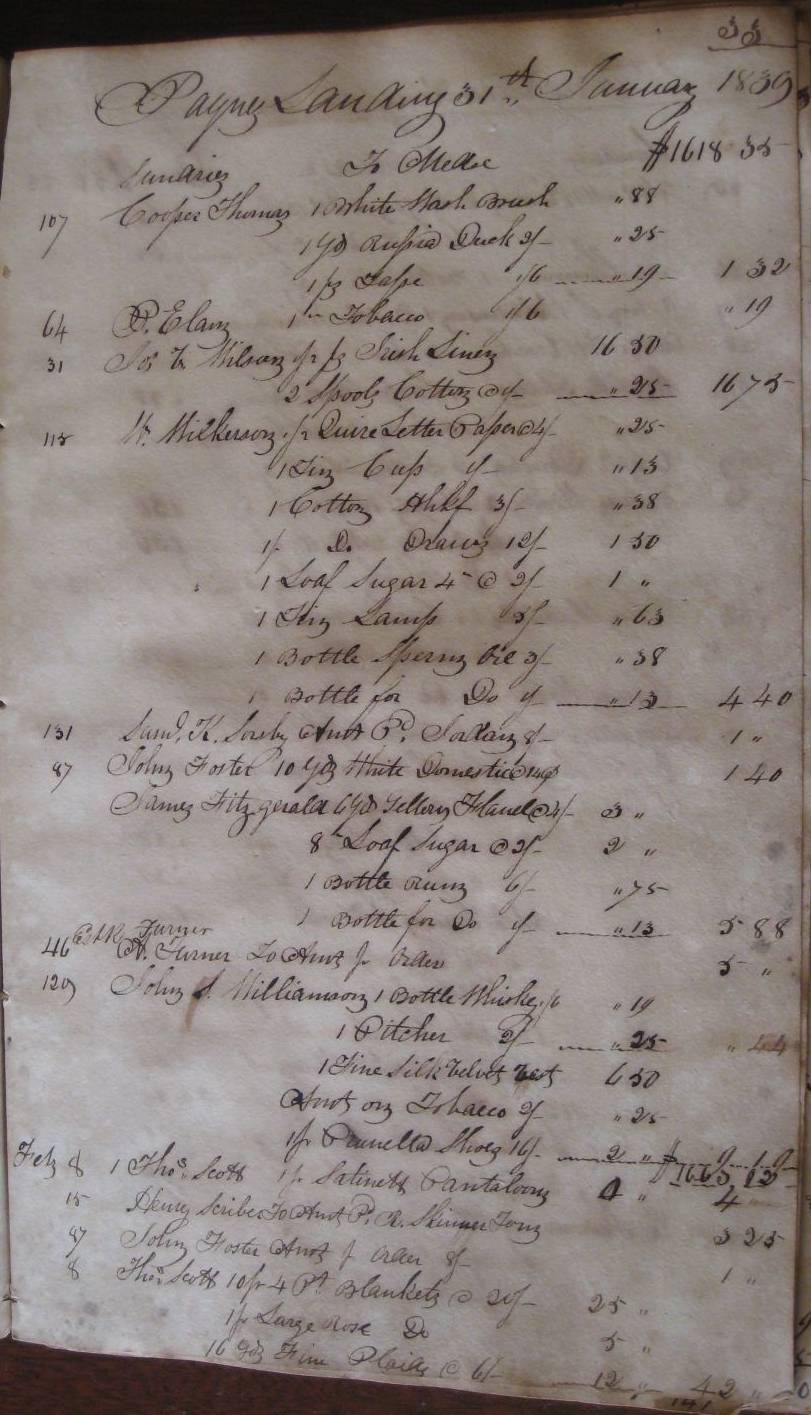 33
Paynes Landing 31th January 1839
Sundries To Mdse $1618 55
107 Cooper Thomas 1 White Wash Brush " 88
1 Yd Russia Duck 2/- " 25
1 ps Tape 1/6 " 19 1 32
64 P. Elam 1 " Tobacco 1/6 " 19
31 Wilson ps Irish Linen 16 50
2 Spools Cotton @ 1/- " 25 16 75
115 W. Wilkerson Quire Letter Paper @ 4/- " 25
1 Tin Cup 1/- " 13
1 Cotton Hhkf 3/- " 38
1 pr Do Drawers 12/- 1 50
1 Loaf Sugar 4 @ 2/- 1 "
1 Tin Lamp 5/- " 63
1 Bottle Sperm Oil 3/- " 38
1 Bottle for Do 1/- " 13 4 40
131 Saml. K. Amt Pd. Jordan 8/- 1 "
87 John Foster 10 Yds White Domestic @ 14¢ 1 40
James Fitzgerald 6 Yds Yellow Flanel @ 4/- 3 "
8 Loaf Sugar @ 2/- 2 "
1 Bottle Rum 6/- " 75
1 Bottle for Do 1/- " 13 5 88
Turner
46 A. Turner To Amt pr order 5 "
129 John S. Williamson 1 Bottle Whiskey 1/6 " 19
1 Pitcher 2/- " 25 " 44
1 Fine Silk Velvet Vest 6 50
Amt on Tobacco 2/- " 25
1 pr Prunella Shoes 16/- 2 "
$1663 12
Feb 8 1 Thos. Scott 1 pr Satinett Pantaloons 4 " 4
15 Henry Scriber To Amt Pd. R. Skinner 3 25
87 John Foster Amt pr order 8/- 1 "
8 Thos. Scott 10 pr 4 Pt Blankets @ 20/- 25 "
1 pr Large Rose Do 5 "
16 Yds Fine Plaids @ 6/- 12 " 42 "